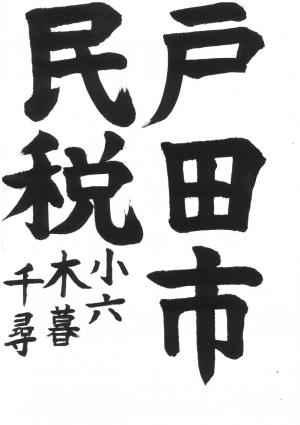 戸田市
民税
小六
木暮
千尋